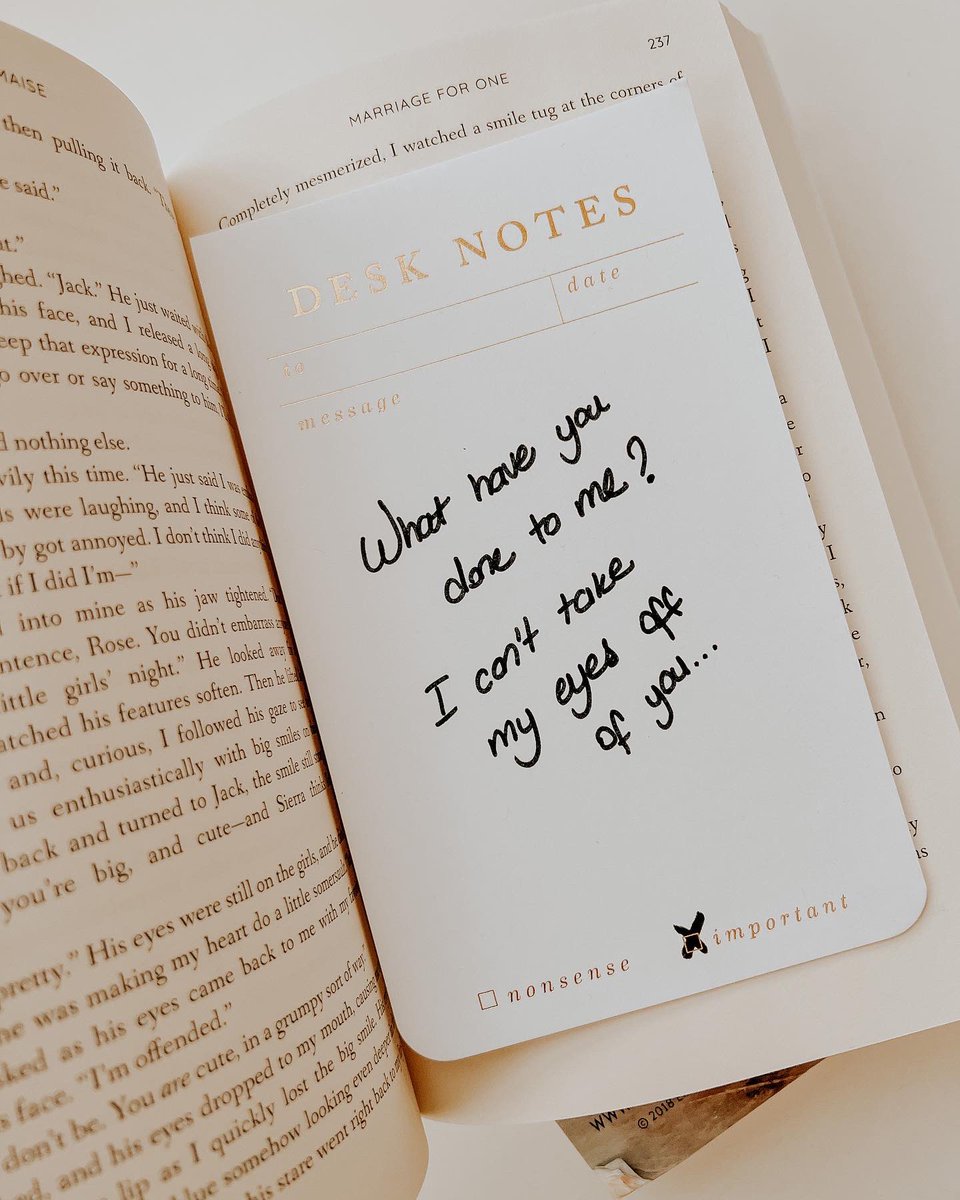 MAISE
then pulling it back.
e said."
t."
ghed. "Jack." He just waited
his face, and I released a
eep that expression for a long
o over or say something to him,
d nothing else.
vily this time. "He just said I was
s were laughing, and I think some
by got annoyed. I don't think I did
if I did I'm—"
into mine as his jaw tightened.
ntence, Rose. You didn't embarrass
ittle girls' night." He looked away
atched his features soften. Then he
and, curious, I followed his gaze to
us enthusiastically with big smiles
back and turned to Jack, the smile still
you're big, and cute—and Sierra
pretty." His eyes were still on the girls, and he
he was making my heart do a little somersault
sked as his eyes came back to me with my
s face. "I'm offended."
don't be. You are cute, in a grumpy sort of way."
ed, and his eyes dropped to my mouth,
lip as I quickly lost the big smile.
lue somehow looking even deeper
his stare went right back to
237
MARRIAGE FOR ONE
Completely mesmerized, I watched a smile tug at the corners of
DESK NOTES
to
date
message
What have you
done to me?
I can't take
my eyes off
of you...
nonsense
important
WWW.
© 2018